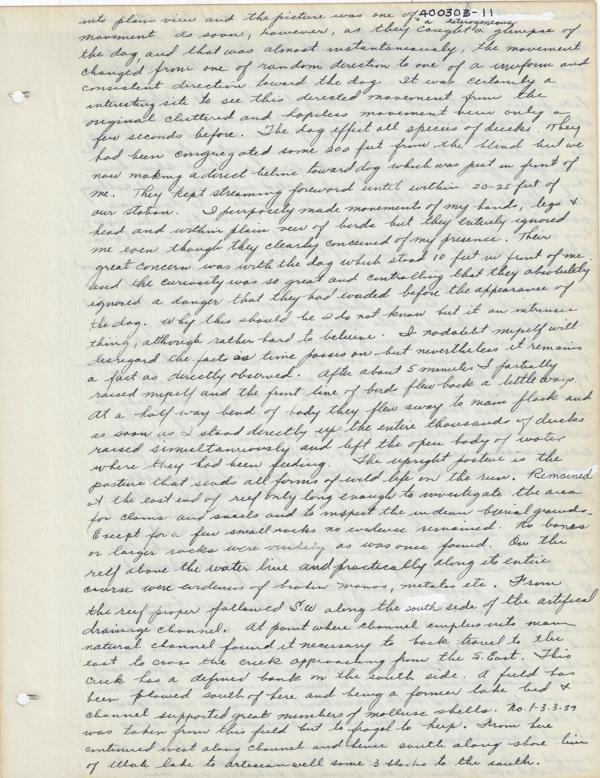 400303-11
into plain view and the picture was one of a heterogeneous
movement. As soon, however, as they caught a glimpse of
the dog, and that was almost instantaneously, the movement
changed from one of random direction to one of a uniform and
consistent direction toward the dog. It was certainly a
interesting site to see this directed movement from the
original cluttered and hopeless movement view only a
few seconds before. The dog effect all species of ducks. They
had been congregated some 200 feet from the blind but we
now making a direct beline toward dog which was just in front of
me. They kept streaming foreward until within 20-25 feet of
our station. I purposely made movements of my hands, legs &
head and within plain view of birds but they entirely ignored
me even though they clearly conceived of my presence. Their
great concern was with the dog which stood 10 feet in front of me
and the curiosity was so great and controlling that they absolutely
ignored a danger that they had evaded before the appearance of
the dog. Why this should be I do not know but it an intrinsic
thing, although rather hard to believe. I no doubt myself will
disregard the fact as time passes on but nevertheless it remains
a fact as directly observed. After about 5 minutes I partially
raised myself and the front line of birds flew back a little ways
At a half way bend of body they flew away to main flock and
as soon as I stood directly up the entire thousands of ducks
raised simultaneously and left the open body of water
where they had been feeding. The upright posture is the
posture that sends all forms of wild life on the run. Remained
at the east end of reef only long enough to investigate the area
for clams and snails and to inspect the indian burial grounds.
Except for a few small rocks no evidence remained. No bones
or larger rocks were visible as was once found. On the
reef above the water line and practically along its entire
course were evidences of broken manos, metates etc. From
the reef proper followed S.W along the south side of the artifical
drainage channel. At point where channel empties into main
natural channel found it necessary to back travel to the
east to cross the creek approaching from the S. East. This
creek has a defined bank on the south side. A field has
been plowed south of here and being a former lake bed &
channel supported great members of mollusc shells. No. 1-3.3.39
was taken from this field but to fragel to keep. From here
continued west along channel and hence south along shore line
of Utah lake to artesian well some 3 blocks to the south.